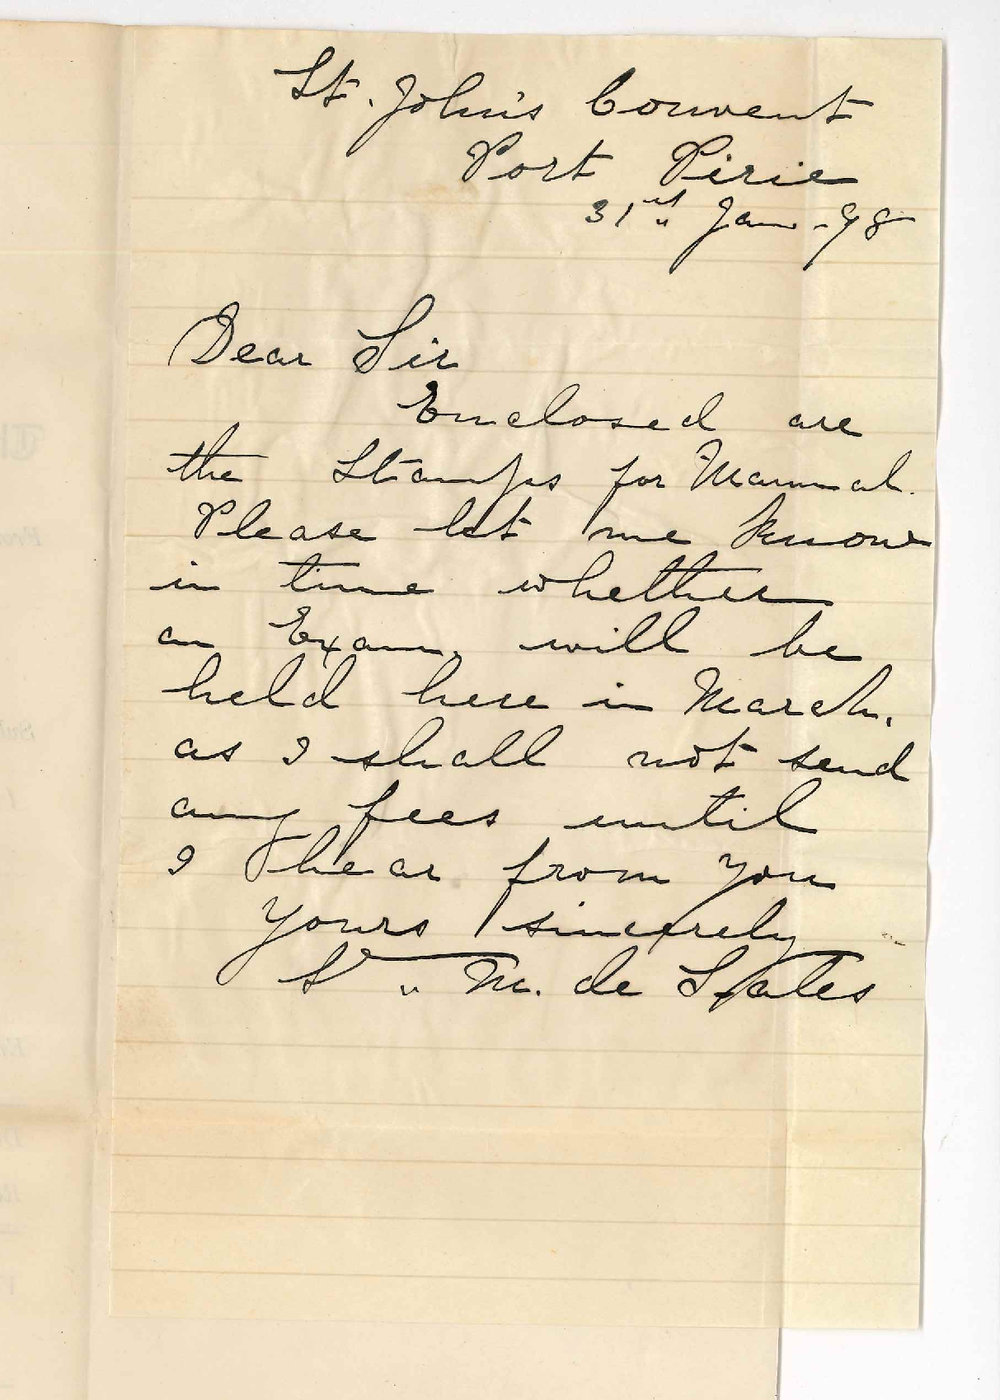 St. John's Convent
Port Pirie
31st Jan -98
Dear Sir
Enclosed are
the Stamps for Manual.
Please let me know
in time whether
an Exam. will be
held here in March,
as I shall not send
any fees until
I hear from you
Yours sincerely
Sr M. de Sales